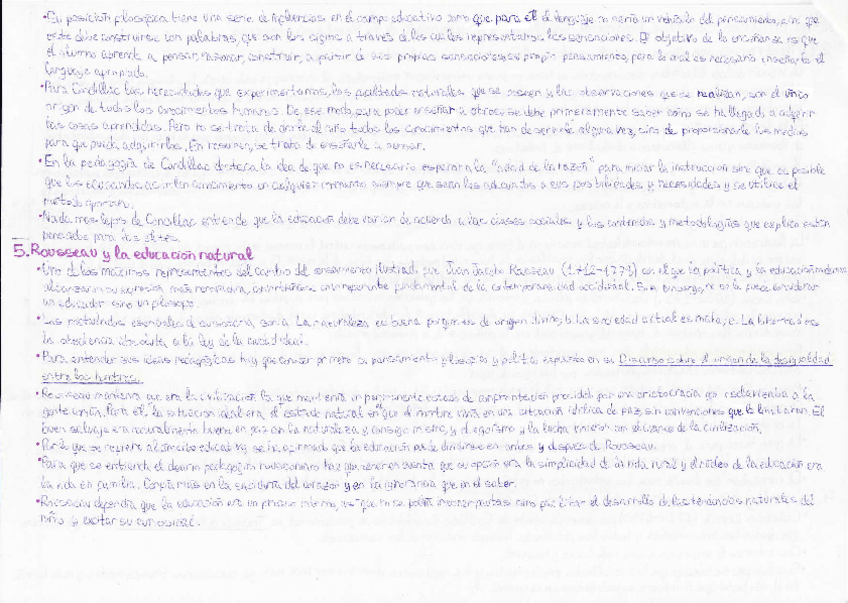 • Su posición filosófica tiene una serie de influencias en el campo educativo como que para él el lenguaje no sería un vehículo del pensamiento, sino que
este debe construirse con palabras, que son los signos a través de los cuales representamos las sensaciones. El objetivo de la enseñanza es que
el alumno aprenda a pensar, razonar, construir, a partir de sus propias sensaciones su propio pensamiento, para lo cual es necesario enseñarle el
lenguaje apropiado.
• Para Condillac las necesidades que experimentamos, las facultades naturales que se poseen y las observaciones que se realizan, son el único
origen de todos los conocimientos humanos. De ese modo, para poder enseñar a otros, se debe primeramente saber cómo se ha llegado a adquirir
las cosas aprendidas. Pero no se trata de darle al niño todos los conocimientos que han de servirle alguna vez, sino de proporcionarle los medios
para que pueda adquirirlos. En resumen, se trata de enseñarle a pensar.
• En la pedagogía de Condillac destaca la idea de que no es necesario esperar a la "edad de la razón" para iniciar la instrucción sino que es posible
que los educandos adquieran conocimiento en cualquier momento siempre que sean los adecuados a sus posibilidades y necesidades y se utilice el
método oportuno.
• Nada más lejos de Condillac entiende que la educación debe variar de acuerdo a las clases sociales y los contenidos y metodologías que explica están
pensados para las élites.
5. Rousseau y la educación natural
• Uno de los máximos representantes del cambio del pensamiento ilustrado fue Juan Jacobo Rousseau (1712-1778) con el que la política y la educación moderna
alcanzaron su expresión más renovadora, convirtiéndose en un representante fundamental de la contemporaneidad occidental. Sin embargo, no se le puede considerar
un educador sino un filósofo.
• Los postulados esenciales de su teoría, son: a. La naturaleza es buena porque es de origen divino; b. La sociedad actual es mala; c. La libertad es
la obediencia absoluta a la ley de la ciudad ideal.
• Para entender sus ideas pedagógicas hay que conocer primero su pensamiento filosófico y político expuesto en su Discurso sobre el origen de la desigualdad
entre los hombres.
• Rousseau mantenía que era la civilización la que mantenía un permanente estado de corrupción presidido por una aristocracia que esclavizaba a la
gente común. Para él, la situación ideal era el estado natural en que el hombre vivía en una situación idílica de paz, sin convenciones que le limitaran. El
buen salvaje era naturalmente bueno en paz con la naturaleza y consigo mismo, y el egoísmo y la lucha vinieron con el avance de la civilización.
• Por lo que se refiere al ámbito educativo, se ha afirmado que la educación puede dividirse en antes y después de Rousseau.
• Para que se entienda el ideario pedagógico rousseauniano hay que tener en cuenta que su opción era la simplicidad de la vida rural y el núcleo de la educación era
la vida en familia. Confía más en la sabiduría del corazón y en la ignorancia que en el saber.
• Rousseau defendía que la educación era un proceso interno, en que no se podía imponer pautas sino facilitar el desarrollo de las tendencias naturales del
niño y excitar su curiosidad.